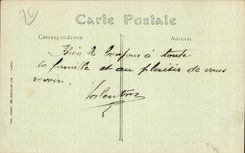 Carte Postale
Correspondance Adresse
Bien le bonjour à toute
la famille et au plaisir de vous
revoir.